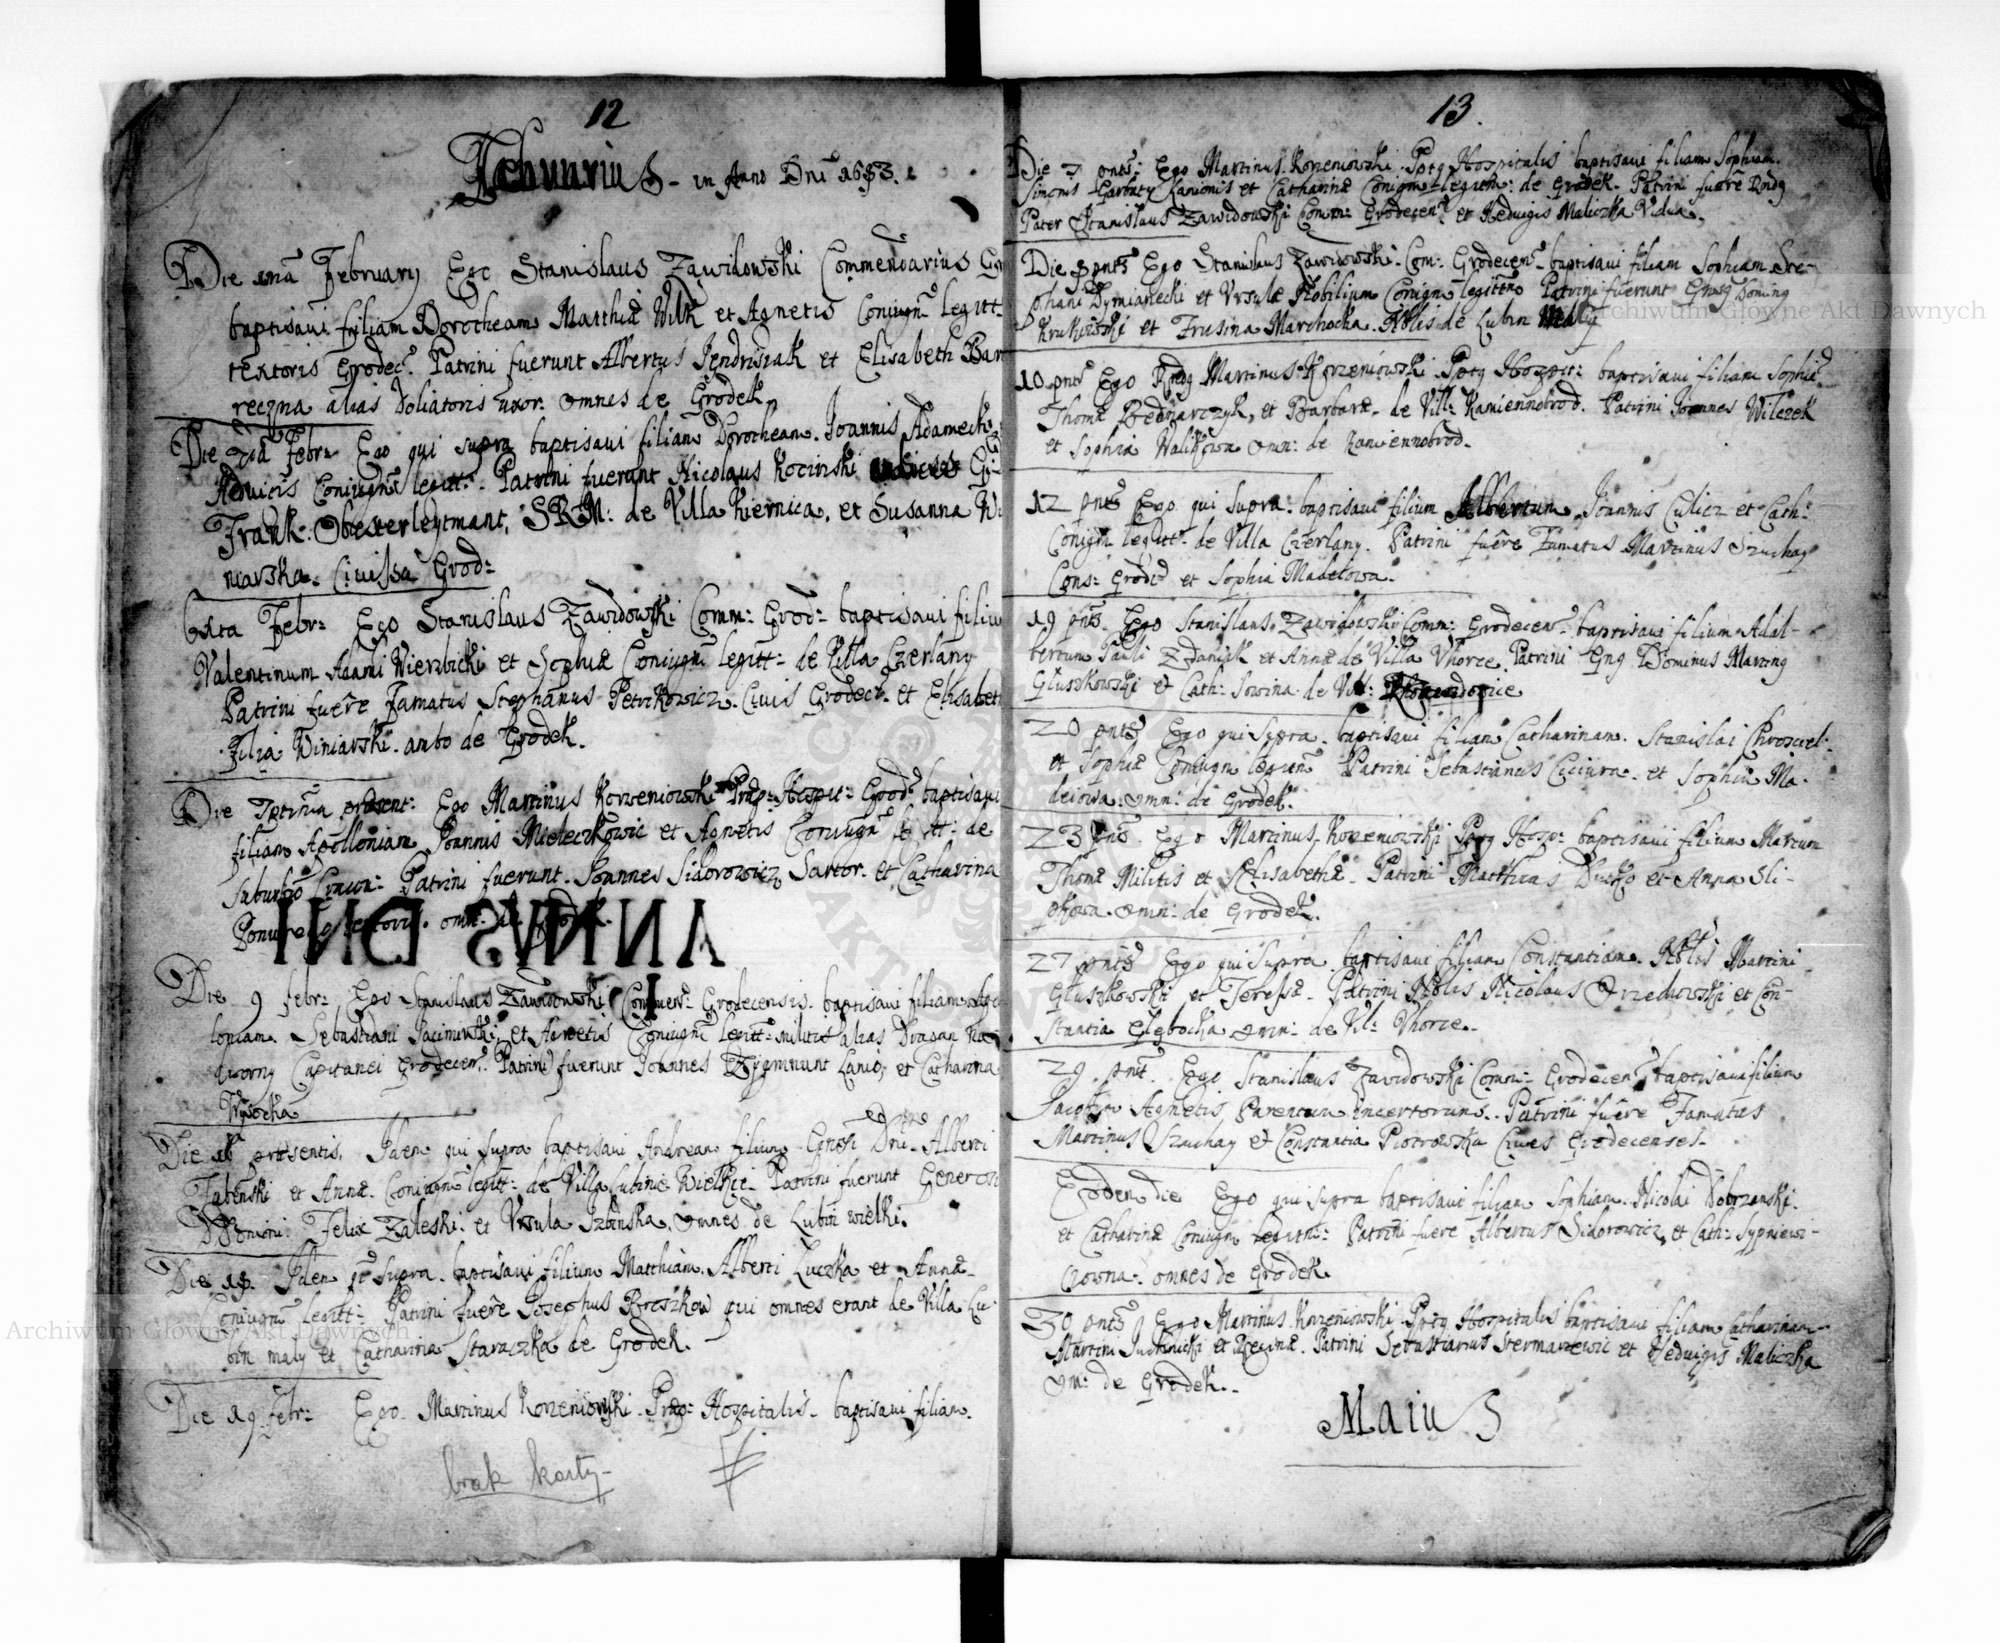 12
Februarius in Anno Dni 1683.
Die Februarij Ego Stanislaus Zawidowski Commendarius
baptisavi filiam Dorotheam Matthiæ Wilk et Agnetis Coniugm legitt:
textoris Grodec: Patrini fuerunt Albertus Jendriszak et Elisabeth Bar
reczna alias Doliatoris uxor. omnes de Grodek.
Die Febr: Ego qui supra baptisavi filiam Dorotheam. Joannis Adamecki
Coniugm legitt: Patrini fuerunt Nicolaus Kocinski
Frank: Obesterleytmant, SRM: de Villa Kiernica, et Susanna Wi
niarska. Civissa Grod:
6xta Febr: Ego Stanislaus Zawidowski Comm: Grod: baptisavi filium
Valentinum Adami Wierzbicki et Sophiæ Coniugm legitt: de Villa Czerlany
Patrini fuêre Famatus Stephanus Petrikowicz. Civis Grodec: et Elisabeth
Filia Winiarski. ambo de Grodek.
Die present: Ego Martinus Korzeniowski Præp: Hospit: Grod: baptisavi
filiam Apolloniam Joannis et Agnetis Coniugm legitt: de
Suburbio Patrini fuerunt. Joannes Sidorowicz Sartor. et Catharina
omn: de Grodek.
ANNVS DNI
Die 9 febr: Ego Stanislaus Zawidowski Commen: Grodecensis. baptisavi filiam Apo
loniam. Sebastiani et Agnetis Coniugm legitt: militis alias Dragan
Capitanei Grodecen: Patrini fuerunt Joannes Zygmunt Lanio, et Catharina
Wysocka
Die præsentis, Idem qui supra baptisavi Andream filium Gnosi Dni Alberti
et Annæ. Coniugm legitt: de Villa Lubinie Wielkie. Patrini fuerunt Generosi
Domini: Felix Zaleski. et Ursula Izbinska, omnes de Lubin wielki.
Die 18. Idem qi supra. baptisavi filium Matthiam. Alberti Luczka et Annæ
Coniugm legitt: Patrini fuêre Josephus qui omnes erant de Villa Lu:
bin maly et Catharina Staraczka de Grodek.
Die 19 Febr: Ego. Martinus Korzeniowski. Præp: Hospitalis. baptisavi filiam.
brak karty
13.
Die 7 pnts; Ego Martinus Korzeniowski. Pptg Hospitalis baptisavi filiam Sophiam.
Simonis Garbaty Lanionis et Catharinæ Coniugm legitm: de Grodek. Patrini fuêre Rndg
Pater Stanislaus Zawidowski Comm: Grodecen: et Heduigis Maliczka Vidua.
Die 8 pnts Ego Stanislaus Zawidowski Com: Grodecen: baptisavi filiam Sophiam Ste
phani Dymianlecki et Ursulæ Nobilium Coniugm legittmo Patrini fuerunt Doming
et Frusina Marchocka. Nblis de Lubin Maly
10 pnts Ego Rndg Martinus Korzeniowski. Pptg Hospit: baptisavi filiam Sophiã
Thomæ Bednarczyk, et Barbaræ. de Vill: Kamiennobrod. Patrini Joannes Wilczek
et Sophia Walikowa omn: de Kamiennobrod.
12 pnts Ego qui supra: baptisavi filium Albertum Joannis Culicz et Cath:
Coniugm legitt: de Villa Czerlany. Patrini fuêre Famatus Martinus Szuchay
Cons: Grodec et Sophia Madelowa.
19 pnts. Ego Stanislaus Zawidowski Comm: Grodecen: baptisavi filium Adal-
bertum Pauli Zdaniuk et Annæ de Villa Vhorce. Patrini Gng Dominus Marting
Gluszkowski et Cath: Sowina de Vill:
20 pnts Ego qui supra. baptisavi filiam Catharinam. Stanislai
et Sophiæ Coniugm legitm Patrini Sebastianus Cieiura. et Sophia Ma-
deiowa: omn: de Grodek.
23 pnts. Ego Martinus Korzeniowski Pptg Hosp: baptisavi filium Marcum
Thomæ Militis et Elisabethæ. Patrini Matthias et Anna Sli-
pkowa. omn: de Grodek.
27 pnts Ego qui supra baptisavi filiam Constantiam. Nblis Martini
Gluszkowski et Teressæ. Patrini Nblis Nicolaus Orzechowski et Con-
stantia Glębocka omn: de Vil: Vhorce.
29 pnt. Ego Stanislaus Zawidowski Comm: Grodecen: baptisavi filium
Jacobum Agnetis Parentum incertorum. Patrini fuêre Famatus
Martinus Szuchay et Constantia Piotrowska Cives Grodecenses.
Eodem die Ego qui supra baptisavi filiam Sophiam. Nicolai Dobrzanski.
et Catharinæ Coniugm legitm: Patrini fuere Albertus Sidorowicz, et Cath: Sypniewi-
czowna: omnes de Grodek
30 pnts Ego Martinus Korzeniowski Pptg Hospitalis baptisavi filiam Catharinam
Martini et Reginæ. Patrini Sebastianus Stermarzewic et Heduigis Maliczka
om: de Grodek.
Maius
Archiwum Główne Akt Dawnych
Archiwum Główne Akt Dawnych